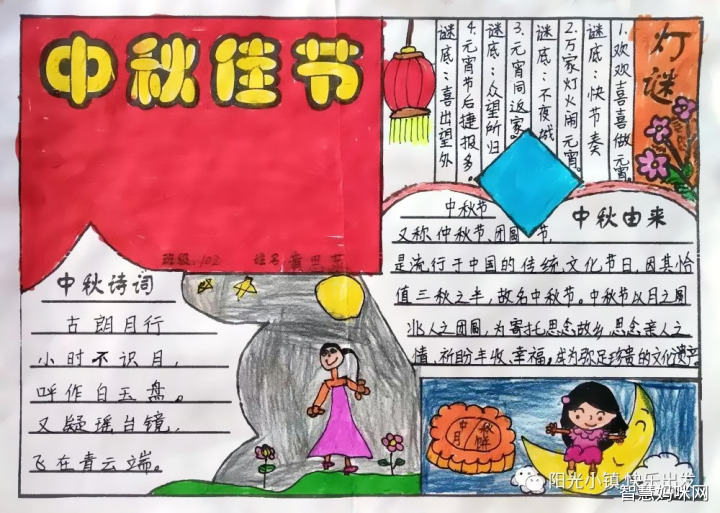 中秋佳节
班级：102 姓名
灯谜
1.欢欢喜喜做元宵。
谜底：快节奏
2.万家灯火闹元宵。
谜底：不夜城
3.元宵同返家。
谜底：众望所归
4.元宵节后捷报多。
谜底：喜出望外
中秋诗词
古朗月行
小时不识月，
呼作白玉盘。
又疑瑶台镜，
飞在青云端。
中秋由来
中秋节
又称仲秋节、团圆节，
是流行于中国的传统文化节日，因其恰
值三秋之半，故名中秋节。中秋节以月之圆
兆人之团圆，为寄托思念故乡，思念亲人之
情，祈盼丰收、幸福，成为弥足珍贵的文化遗产。
中秋
月饼
阳光小镇 快乐出发
智慧妈咪网